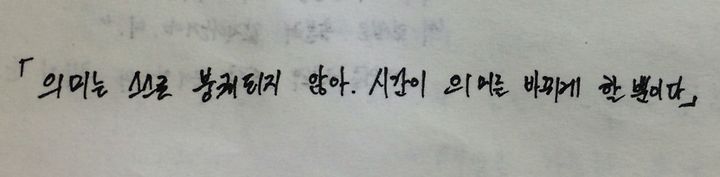 「의미는 스스로 붕괴되지 않아. 시간이 의미를 바뀌게 할 뿐이다」